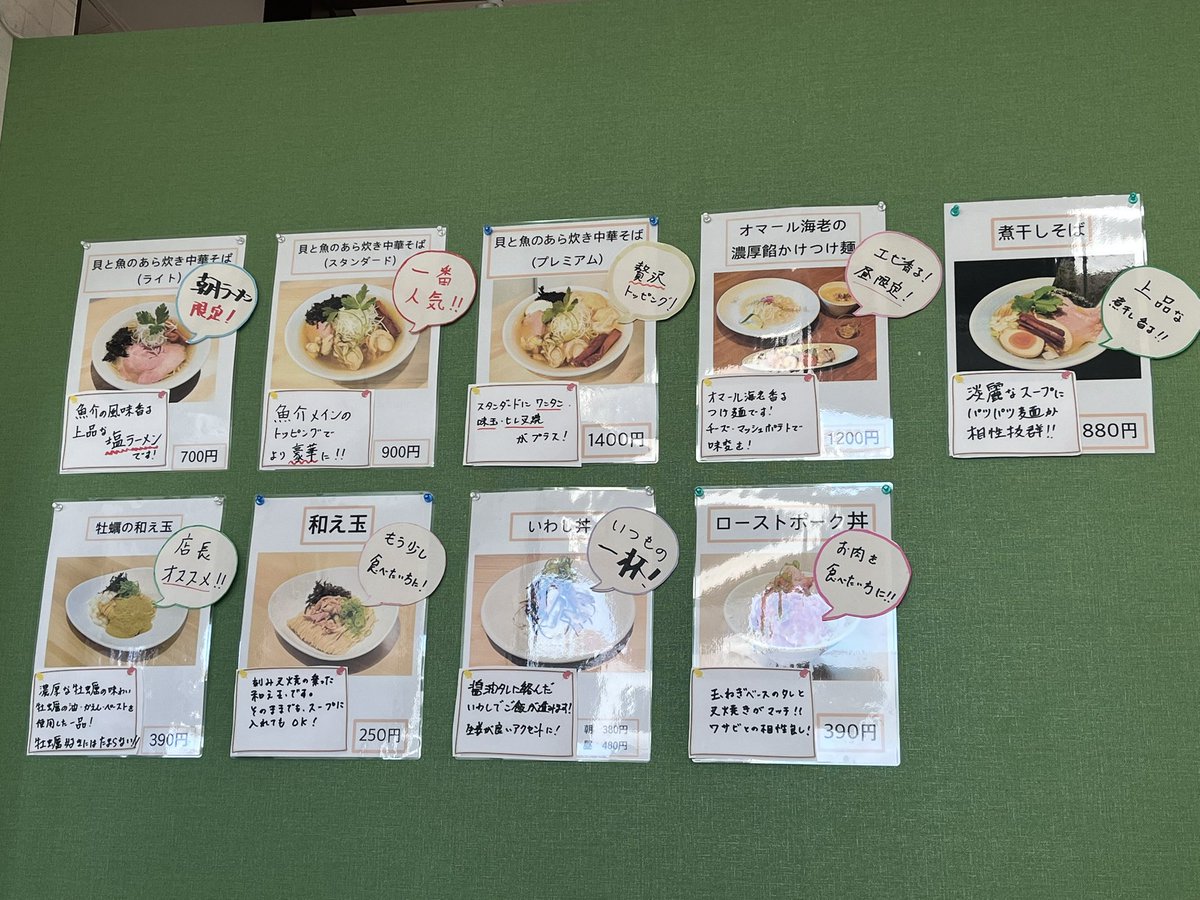 貝と魚のあら炊き中華そば
(ライト)
朝ラーメン
限定!
魚介の風味香る
上品な
塩ラーメン
です!
700円
貝と魚のあら炊き中華そば
(スタンダード)
一番
人気!!
魚介メインの
トッピングで
より豪華に!!
900円
貝と魚のあら炊き中華そば
(プレミアム)
贅沢
トッピング!
スタンダードにワンタン・
味玉・ヒレ叉焼
がプラス!
1400円
オマール海老の
濃厚餡かけつけ麺
エビ香る!
昼限定!
オマール海老香る
つけ麺です!
チーズ・マッシュポテトで
味変も!
1200円
煮干しそば
上品な
煮干し香る!!
淡麗なスープに
パツパツ麺が
相性抜群!!
880円
牡蠣の和え玉
店長
オススメ!!
濃厚な牡蠣の味わい
牡蠣の油・かえし・ペーストを
使用した一品!
牡蠣好きにはたまらない!!
390円
和え玉
もう少し
食べたい方に!
刻み叉焼の乗った
和え玉です。
そのままでも、スープに
入れてもOK!
250円
いわし丼
いつもの
一杯!
醤油タレに絡んだ
いわしでご飯が進みます!
生姜が良いアクセントに!
朝 380円
昼 480円
ローストポーク丼
お肉を
食べたい方に!!
玉ねぎベースのタレと
叉焼きがマッチ!!
ワサビとの相性良し!
390円